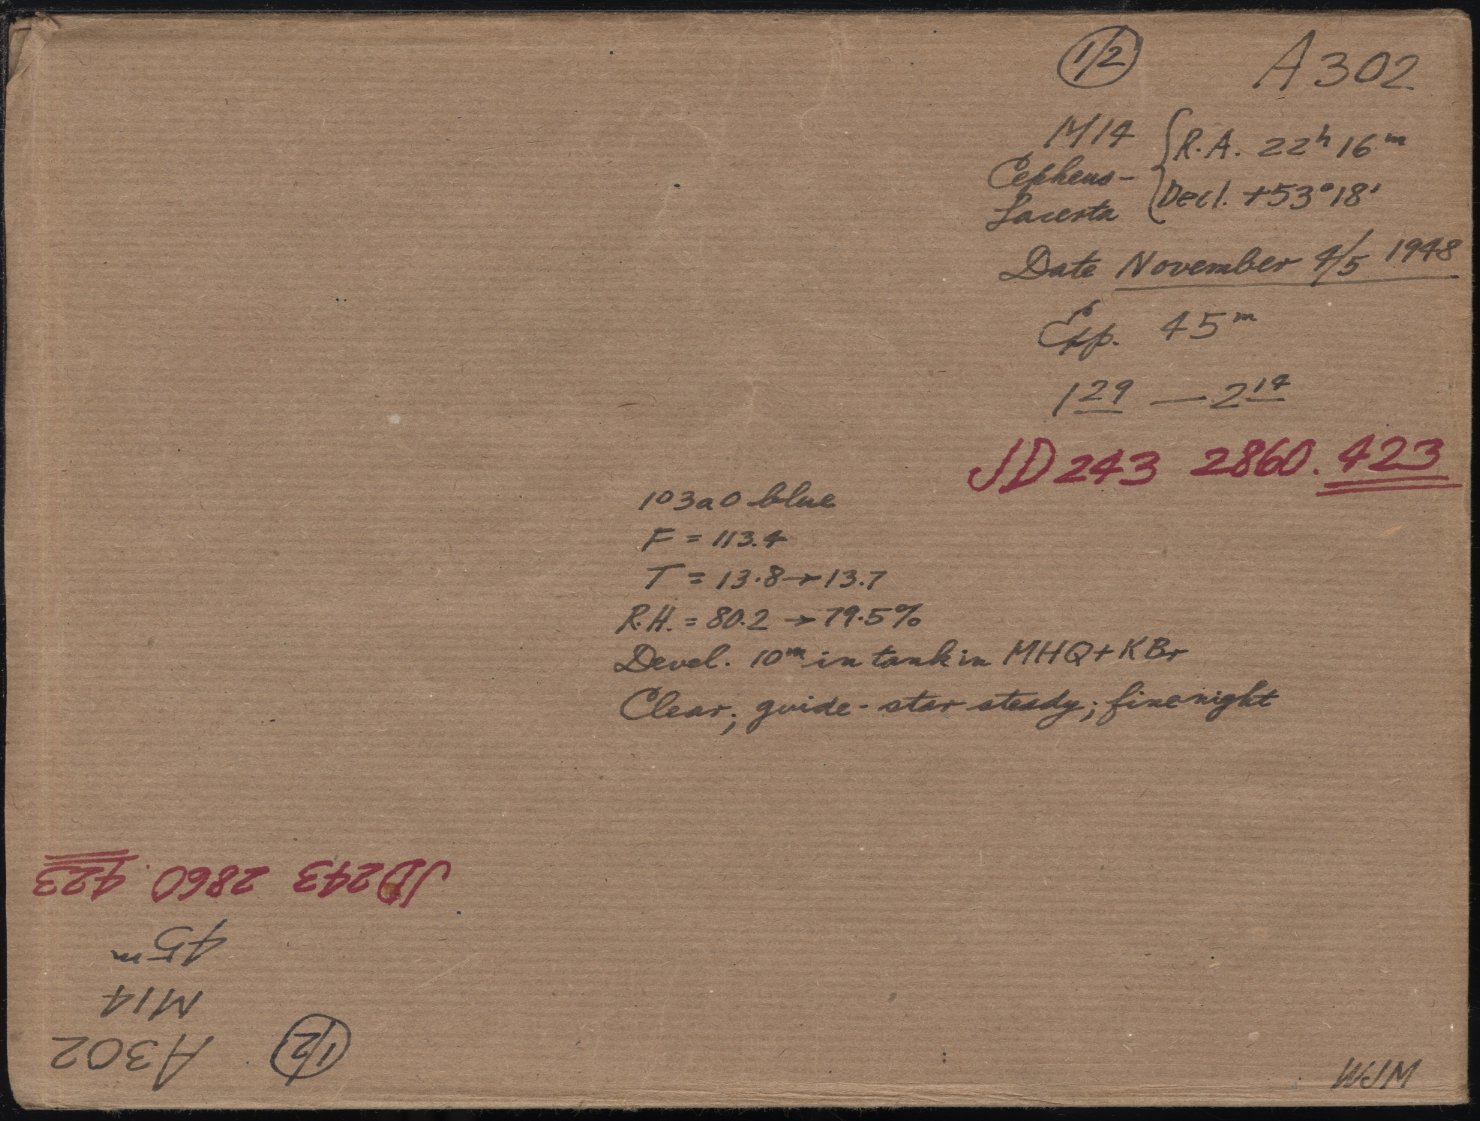 1/2 A302
M14 { R.A. 22h 16m
Cepheus-
Lacerta Decl. +53°18'
Date November 4/5 1948
Exp. 45m
1 29 — 2 14
JD 243 2860.423
103aO blue
F = 113.4
T = 13.8→13.7
R.H. = 80.2 → 79.5%
Devel. 10m in tank in MHQ+KBr
Clear; guide-star steady; fine night
JD243 2860.423
45m
M14
A302 1/2
WJM